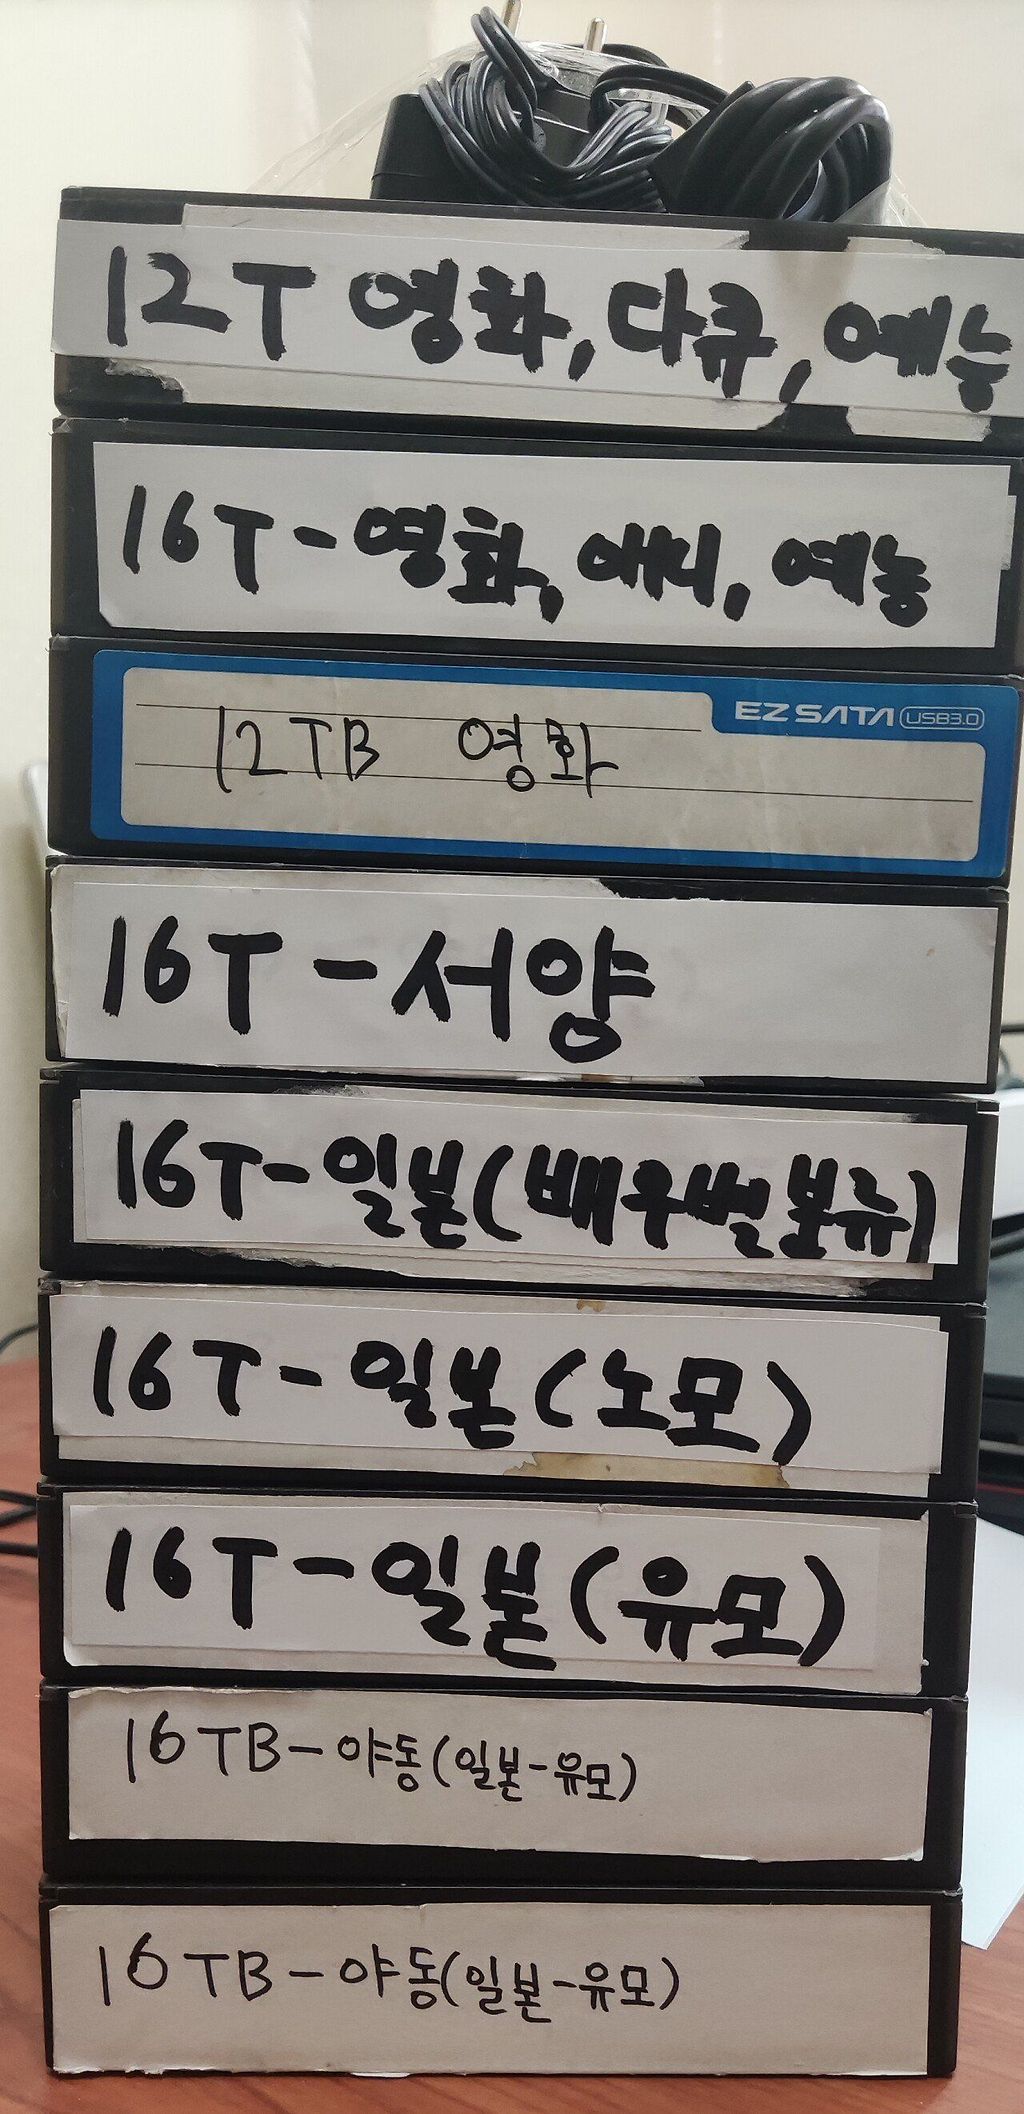 12T 영화, 다큐, 예능
16T-영화, 애니, 예능
EZ SATA USB3.0
12TB 영화
16T-서양
16T-일본(배우별 분류)
16T-일본(노모)
16T-일본(유모)
16TB-야동(일본-유모)
16TB-야동(일본-유모)